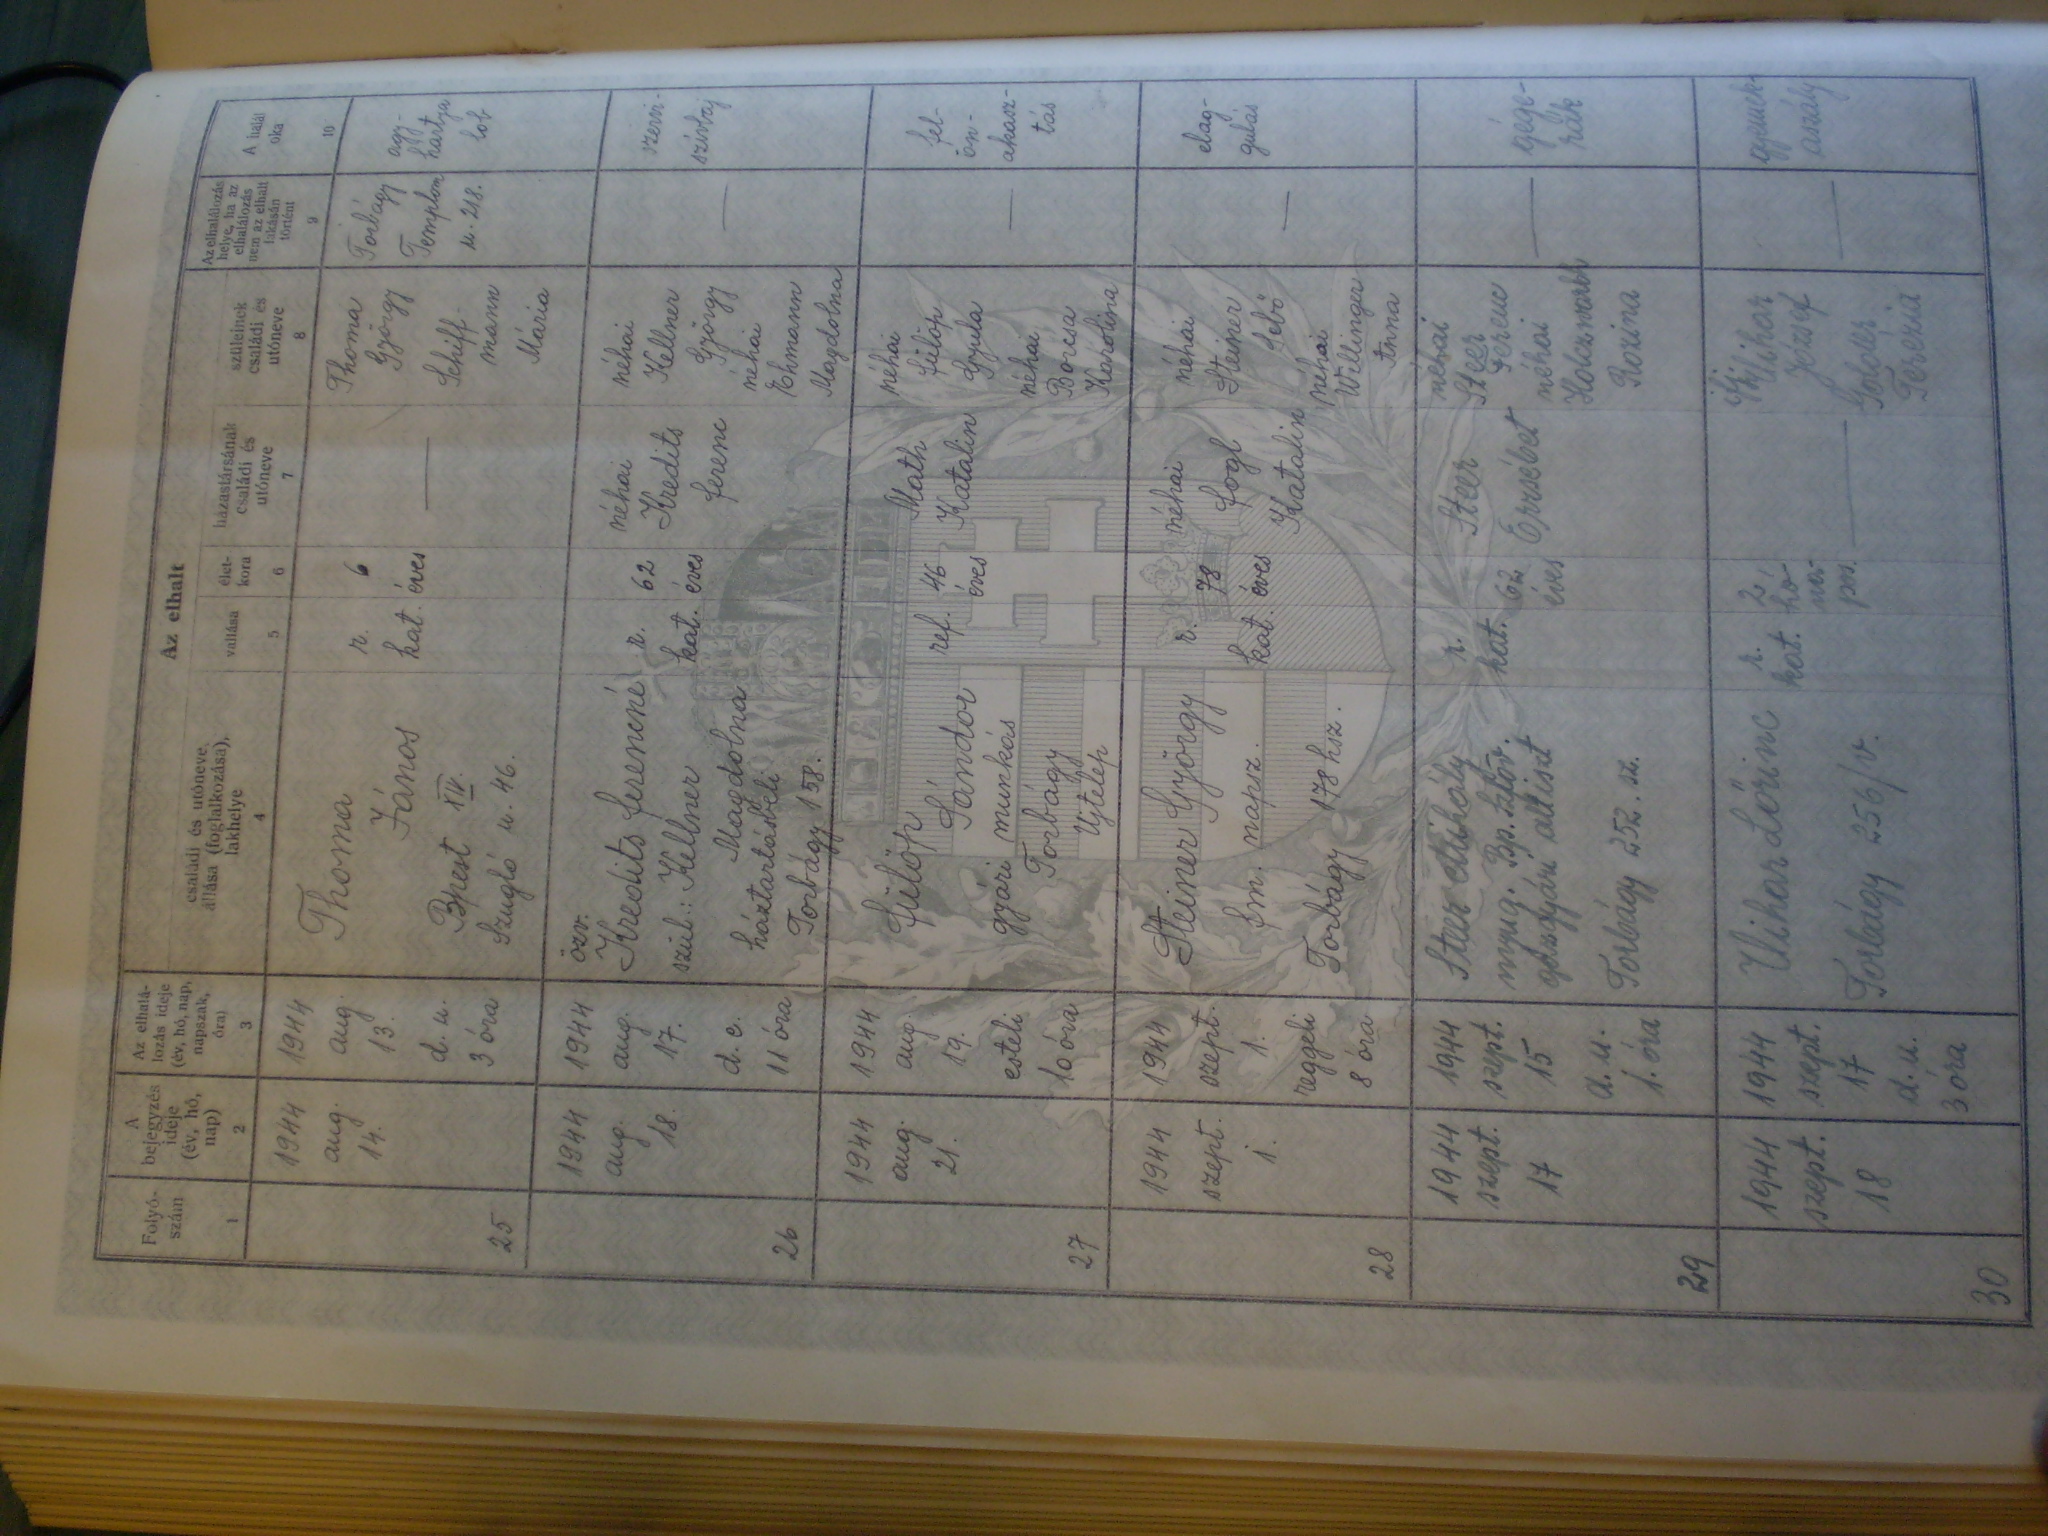 Az elhalt
Folyó-
szám
1
A
bejegyzés
ideje
(év, hó,
nap)
2
Az elhalá-
lozás ideje
(év, hó, nap,
napszak,
óra)
3
családi és utóneve,
állása (foglalkozása),
lakhelye
4
vallása
5
élet-
kora
6
házastársának
családi és
utóneve
7
szüleinek
családi és
utóneve
8
Az elhalálozás
helye, ha az
elhalálozás
nem az elhalt
lakásán
történt
9
A halál
oka
10
25
1944
aug.
14.
1944
aug.
13.
d. u.
3 óra
Thoma
János
Bpest XIV.
Szugló u. 46.
r.
kat.
6
éves
—
Thoma
György
Schiff-
mann
Mária
Torbágy
Templom
u. 218.
agy-
hártya
lob
26
1944
aug.
18.
1944
aug.
17.
d. e.
11 óra
özv.
Kredits Ferencné
szül.: Kellner
Magdolna
háztartásbeli
Torbágy 158.
r.
kat.
62
éves
néhai
Kredits
Ferenc
néhai
Kellner
György
néhai
Ehmann
Magdolna
—
szervi-
szívbaj
27
1944
aug.
21.
1944
aug.
19.
esteli
10 óra
Fülöp
Sándor
gyári munkás
Torbágy
Ujtelep
ref.
46
éves
Math
Katalin
néhai
Fülöp
Gyula
néhai
Boricsa
Karolina
—
fel-
ön-
akasz-
tás
28
1944
szept.
1.
1944
szept.
1.
reggeli
8 óra
Steiner György
fm. napsz.
Torbágy 178 hsz.
r.
kat.
78
éves
néhai
Fogl
Katalin
néhai
Steiner
Jebő
néhai
Willinger
Anna
—
elag-
gulás
29
1944
szept.
17
1944
szept.
15
d. u.
1. óra
Steer Mihály
nyug. Bp. szför.
gázgyári altiszt
Torbágy 252. sz.
r.
kat.
62
éves
Steer
Erzsébet
néhai
Steer
Ferenc
néhai
Rozina
—
gége-
rák
30
1944
szept.
18
1944
szept.
17
d. u.
3 óra
Vihar Lőrinc
Torbágy 256/v.
r.
kat.
2
hó-
na-
pos.
—
ifj. Vihar
József
Terézia
—
gyermek-
aszály